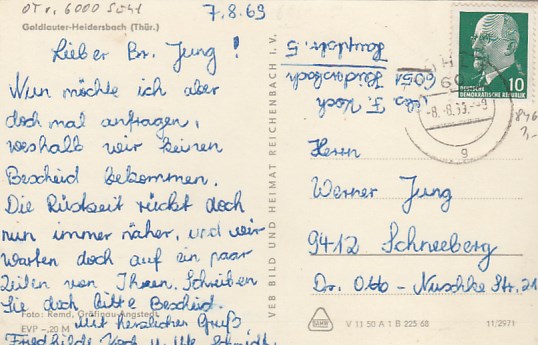 OTr, 6000 Suhl
7.8.69
Goldlauter-Heidersbach (Thür.)
Lieber Br. Jung!
Nun möchte ich aber
doch mal anfragen,
weshalb wir keinen
Bescheid bekommen.
Die Rüstzeit rückt doch
nun immer näher, und wir
warten doch auf ein paar
Zeilen von Ihnen. Schreiben
Sie doch bitte Bescheid.
Foto: Remd, Gräfinau-Angstedt
Mit herzlicher Gruß
EVP -,20 M
Friedhilde Koch u. Ute Schmidt
VEB BILD UND HEIMAT REICHENBACH I. V.
Abs. F. Koch
6051 Heidersbach
Hauptstr. 5
DEUTSCHE
DEMOKRATISCHE REPUBLIK
10
60
-8.-8.69.--9
g
Herrn
Werner Jung
9412 Schneeberg
Dr. Otto-Nuschke Str. 21
V 11 50 A 1 B 225 68
11/2971